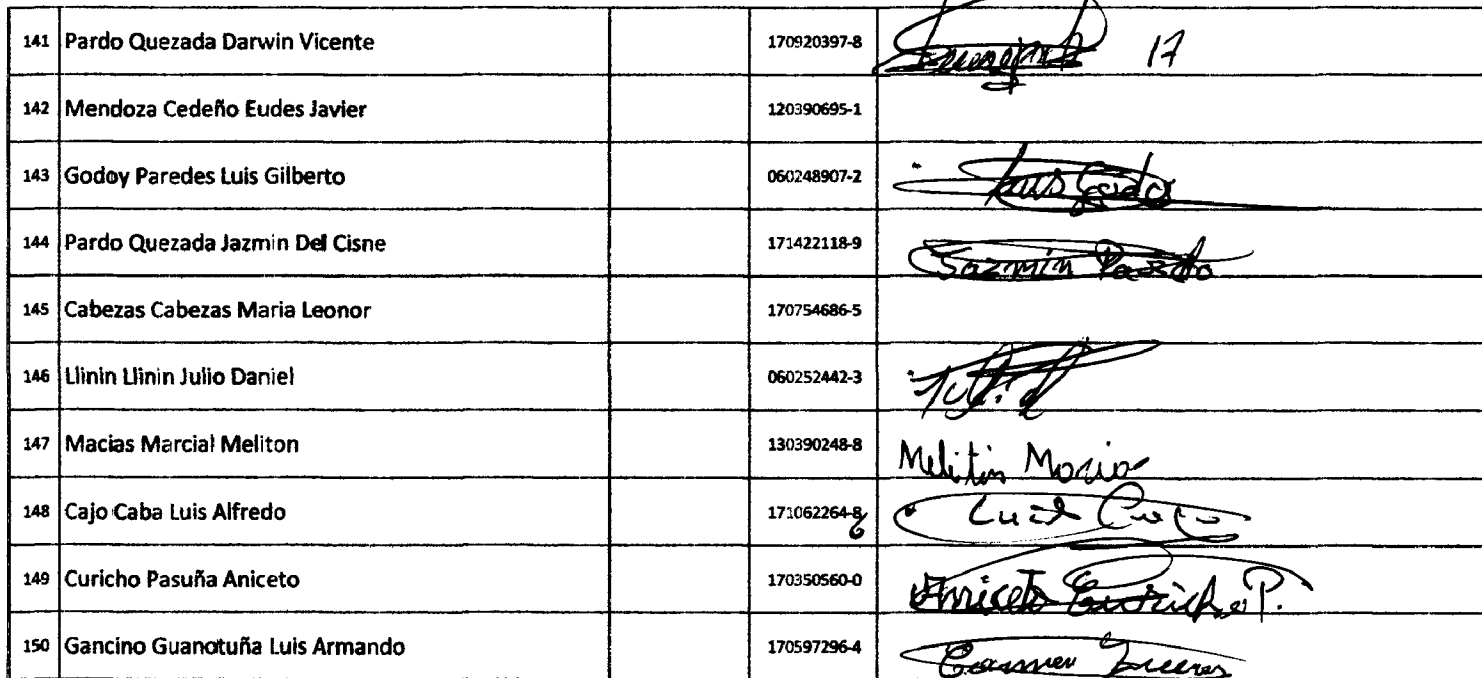 141 Pardo Quezada Darwin Vicente 170920397-8 17
142 Mendoza Cedeño Eudes Javier 120390695-1
143 Godoy Paredes Luis Gilberto 060248907-2 Luis Godoy
144 Pardo Quezada Jazmin Del Cisne 171422118-9 Jazmín Pardo
145 Cabezas Cabezas Maria Leonor 170754686-5
146 Llinin Llinin Julio Daniel 060252442-3
147 Macias Marcial Meliton 130390248-8 Melitón Macias
148 Cajo Caba Luis Alfredo 171062264-8 6 Luis Cajo
149 Curicho Pasuña Aniceto 170350560-0 Aniceto Curicho P.
150 Gancino Guanotuña Luis Armando 170597296-4 Carmen